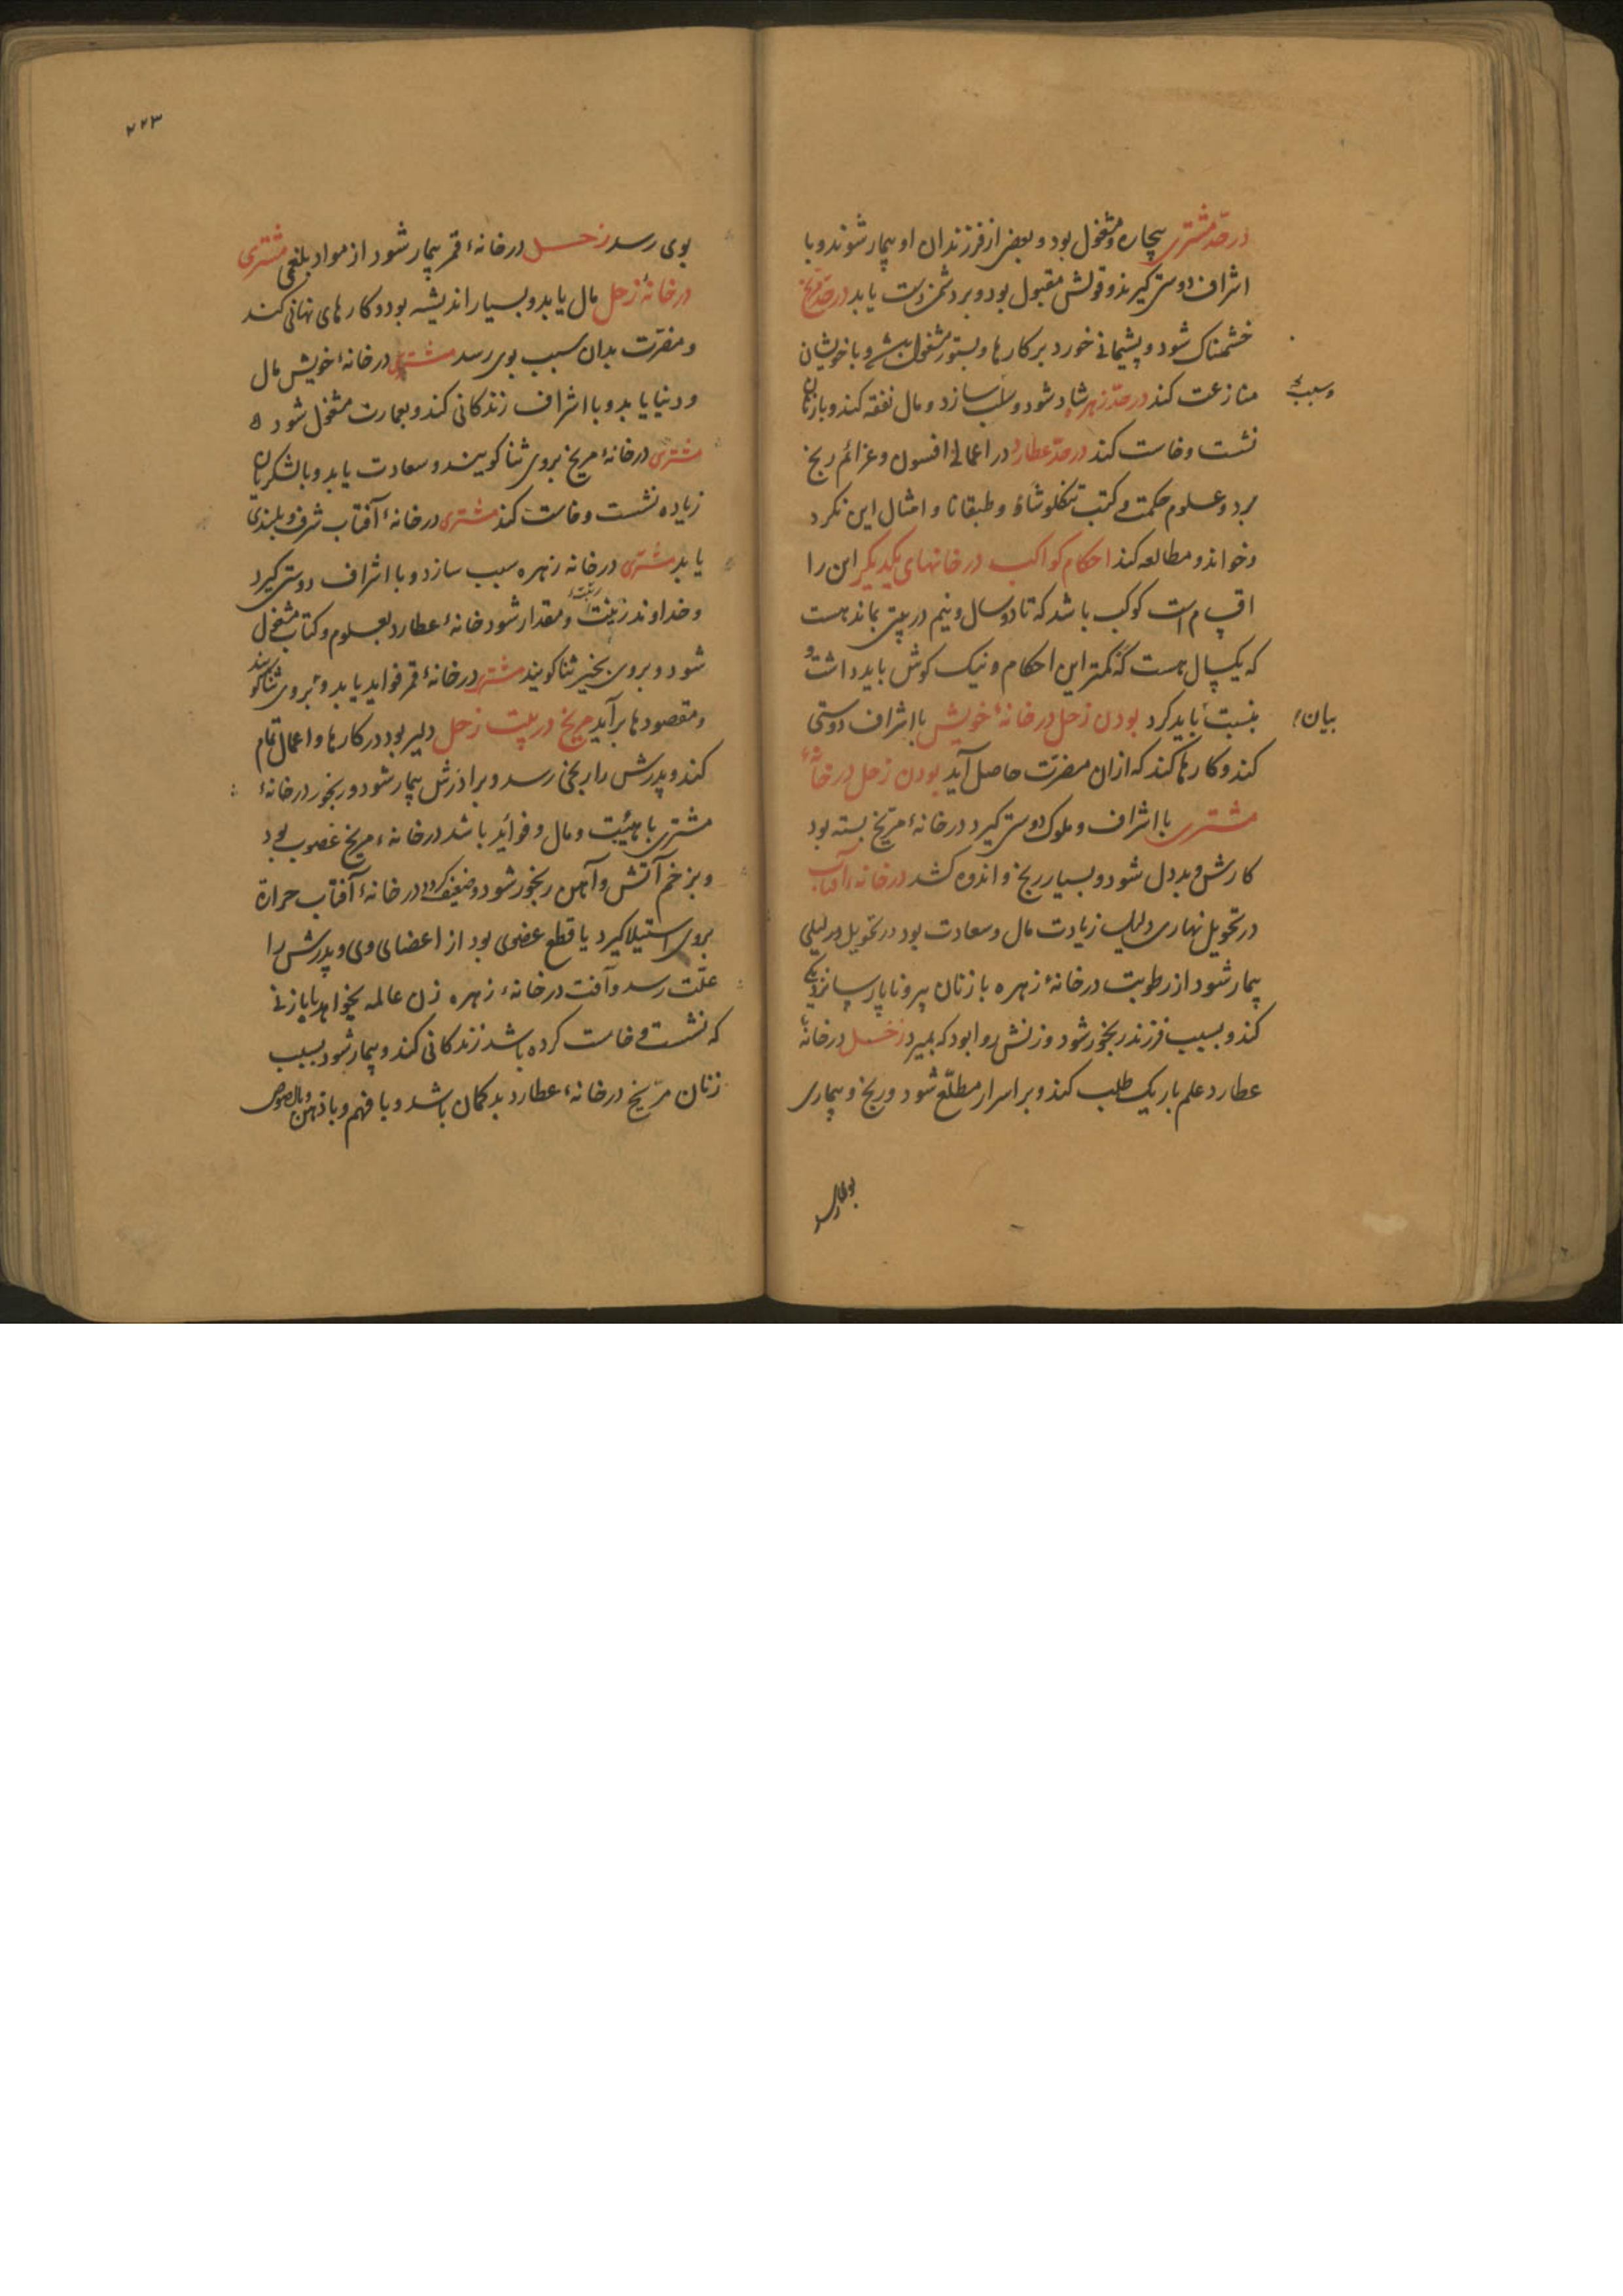 در حد مشتری بیچاره و مشغول بود و بعضی از فرزندان او بیمار شوند و با
اشراف دوستی گیرند و قولش مقبول بود و بر دشمن دست یابد در حد مریخ
خشمناک شود و پشیمانی خورد بر کارها و بستور مشغول و با خویشان
منازعت کند در حد زهره شاد شود و سازد و مال نفقه کند و با زنان
وسبب
نشست و خاست کند در حد عطارد در اعمالی افسون و عزائم رنج
برد و علوم حکمت و کتب تنکلوشاؤ و طبقانا و امثال این نکرد
و خواند و مطالعه کند احکام کواکب در خانهای یکدیگر این را
اقسام است کوکب باشد که تا دو سال و نیم در بیتی بماند هست
که یکسال هست که کمتر این احکام و نیک کوش باید داشت و
بنسبت باید کرد بودن زحل در خانهٔ خویش با اشراف دوستی
بیان
کند و کارها کند که ازان مضرّت حاصل آید بودن زحل در خانهٔ
مشتری با اشراف و ملوک دوستی کیرد در خانهٔ مرّیخ بسته بود
کارش و بددل شود و بسیار رنج و اندوه کشد در خانهٔ آفتاب
در تحویل نهاری دلیل زیادت مال و سعادت بود در تحویل لیلی
بیمار شود از رطوبت در خانهٔ زهره با زنان پیر و ناپارسا نزدیکی
کند و بسبب فرزند رنجور شود و زنش روا بود که بمیرد زحل در خانهٔ
عطارد علم باریک طلب کند و بر اسرار مطلّع شود و رنج و بیماری
بوی رسد
۲۲۳
بوی رسد زحل در خانهٔ قمر بیمار شود از مواد بلغمی مشتری
در خانهٔ زحل مال یابد و بسیار اندیشه بود و کارهای نهانی کند
و مضرّت بدان سبب بوی رسد مشتری در خانهٔ خویش مال
و دنیا یابد و با اشراف زندکانی کند و بعمارت مشغول شود
مشتری در خانهٔ مریخ بروی ثنا کویند و سعادت یابد و با لشکریان
زیاده نشست و خاست کند مشتری در خانهٔ آفتاب شرف و بلندی
یابد مشتری در خانه زهره سبب سازد و با اشراف دوستی کیرد
و خداوند زینت و مقدار شود خانهٔ عطارد بعلوم و کتاب مشغول
شود و بروی بخیر ثنا کویند مشتری در خانهٔ قمر فواید یابد و بروی ثنا کویند
و مقصودها برآید مریخ در بیت زحل دلیر بود در کارها و اعمال تمام
کند و پدرش را رنجی رسد و برادرش بیمار شود و رنجور در خانهٔ
مشتری با هیئت و مال و فوائد باشد در خانهٔ مریخ غضوب بود
و بزخم آتش و آهن رنجور شود و ضعیف کردد در خانهٔ آفتاب حرارة
بروی استیلا کیرد یا قطع عضوی بود از اعضای وی و پدرش را
علّت رسد و آفت در خانهٔ زهره زن عالمه بخواهد یا با زنی
که نشست و خاست کرده باشد زندکانی کند و بیمار شود بسبب
زنان مرّیخ در خانهٔ عطارد بد کمان باشد و با فهم و با ذهن